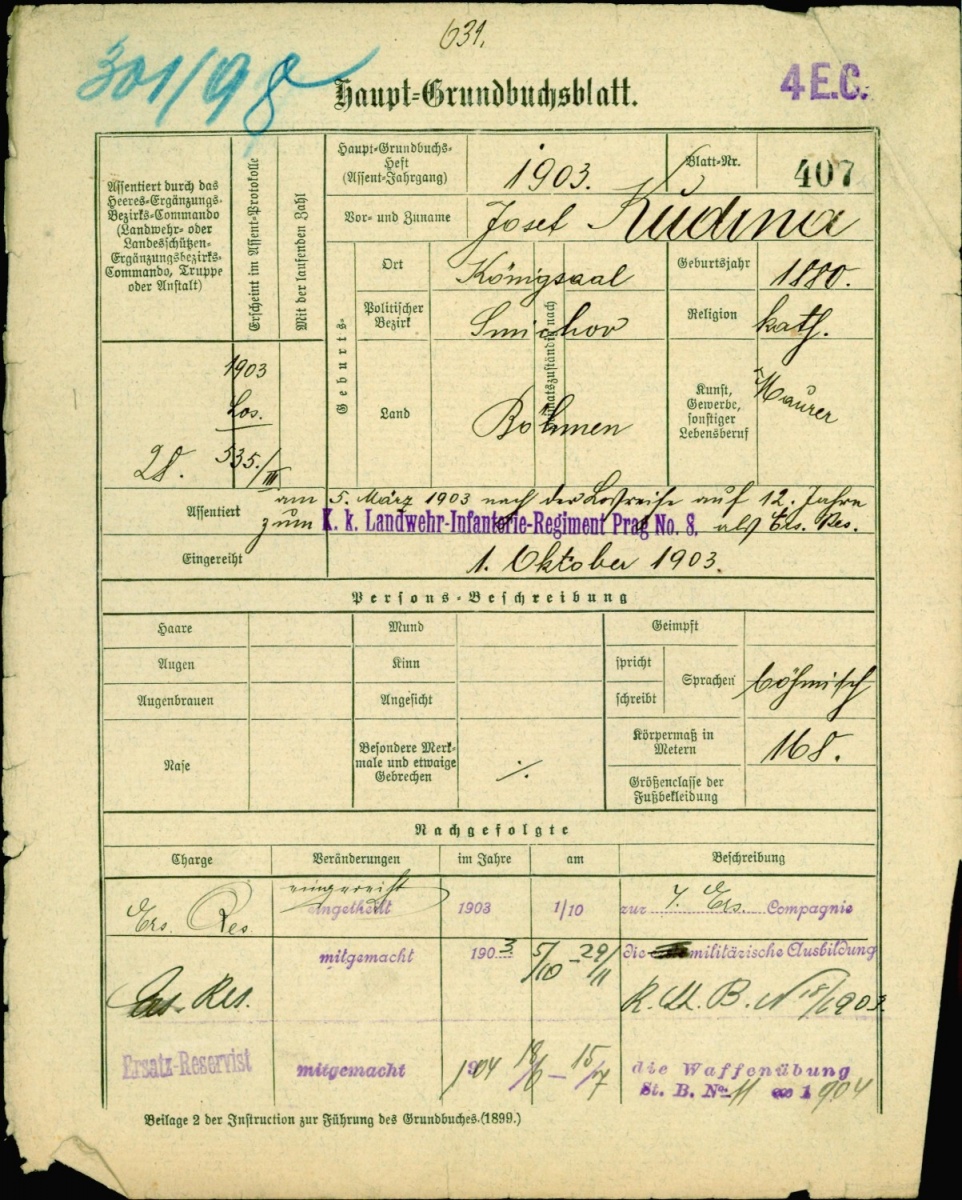 631.
301/98
4 E.C.
Haupt-Grundbuchsblatt.
Assentiert durch das
Heeres-Ergänzungs-
Bezirks-Commando
(Landwehr- oder
Landesschützen-
Ergänzungsbezirks-
Commando, Truppe
oder Anstalt)
Erscheint im Assent-Protokolle
Mit der laufenden Zahl
Haupt-Grundbuchs-
Heft
(Assent-Jahrgang)
1903.
Blatt-Nr.
407
Vor- und Zuname
Josef Kudrna
Geburts-
Ort
Königsaal
Geburtsjahr
1880.
Politischer
Bezirk
Smichov
Religion
kath.
Land
Böhmen
Kunst,
Gewerbe,
sonstiger
Lebensberuf
Maurer
1903
Los.
28. 535./III
Assentiert
am 5. März 1903 nach der Losreihe auf 12. Jahre
zum K. k. Landwehr-Infanterie-Regiment Prag No. 8. als Ers. Res.
Eingereiht
1. Oktober 1903.
Persons-Beschreibung
Haare
Mund
Geimpft
Augen
Kinn
spricht
schreibt
Sprachen
böhmisch
Augenbrauen
Angesicht
Nase
Besondere Merk-
male und etwaige
Gebrechen
./.
Körpermaß in
Metern
168.
Größenclasse der
Fußbekleidung
Nachgefolgte
Charge Veränderungen im Jahre am Beschreibung
eingereiht
Ers. Res. eingetheilt 1903 1/10 zur 7. Ers. Compagnie
mitgemacht 1903 5/10 - 29/11 die militärische Ausbildung
Res. 1903.
Ersatz-Reservist mitgemacht 1904 18/6 - 15/7 die Waffenübung
St. B. No 11 1904
Beilage 2 der Instruction zur Führung des Grundbuches.(1899.)